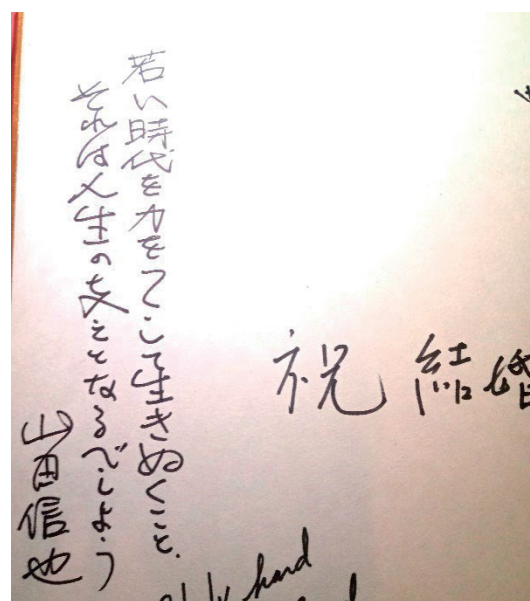 祝 結婚
若い時代を力をつくして生きぬくこと、
それは人生の支えとなるでしょう
山田信也
hard